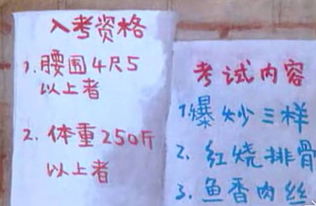 入考资格
1.腰围4尺5
以上者
2.体重250斤
以上者
考试内容
1爆炒三样
2.红烧排骨
3.鱼香肉丝